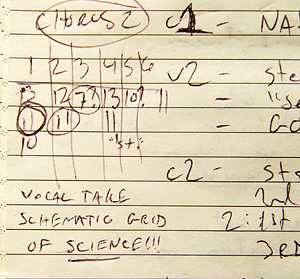 CHORUS 2
C1 - NA
1 2 3 4 5 6
V2 - Ste
3 12 7? 13 10? 11
1 11 11 - GO
10
C2 - St
VOCAL TAKE 2nd
SCHEMATIC GRID 2: 1st
OF SCIENCE!!! 3RD